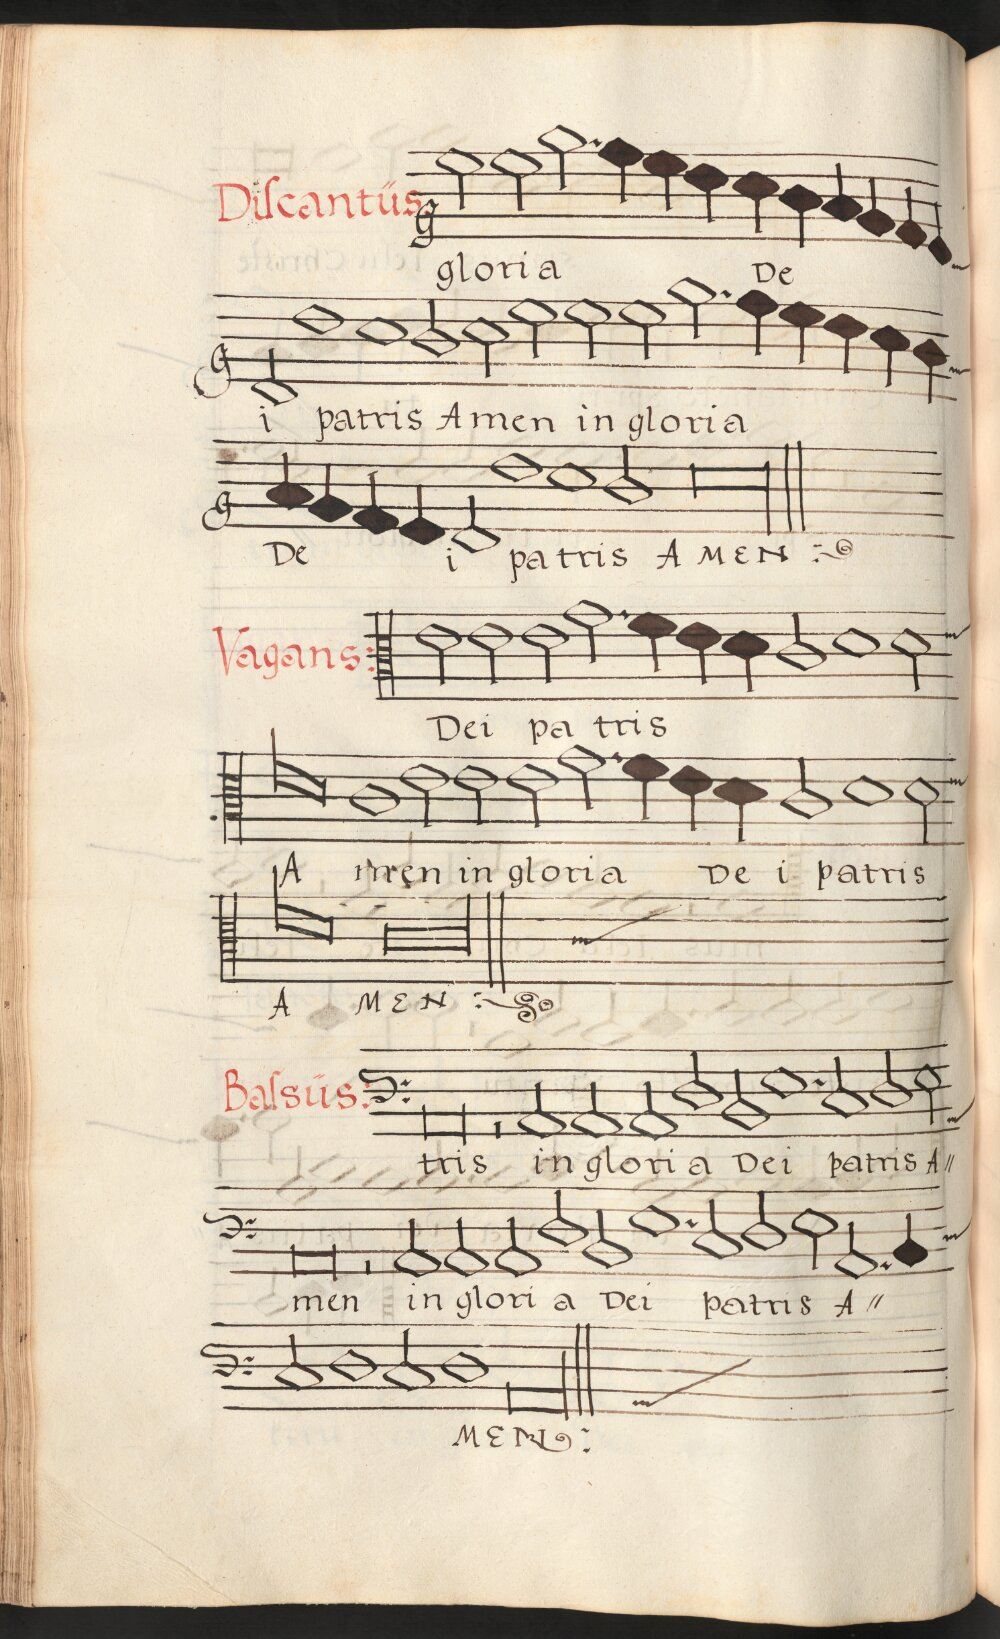 Diſcantüs
gloria De
i patris Amen in gloria
De i patris AMEN
Vagans:
Dei pa tris
A men in gloria De i patris
A MEN
Baſsüs:
tris in gloria Dei patris A//
men in gloria Dei patris A//
MEN: